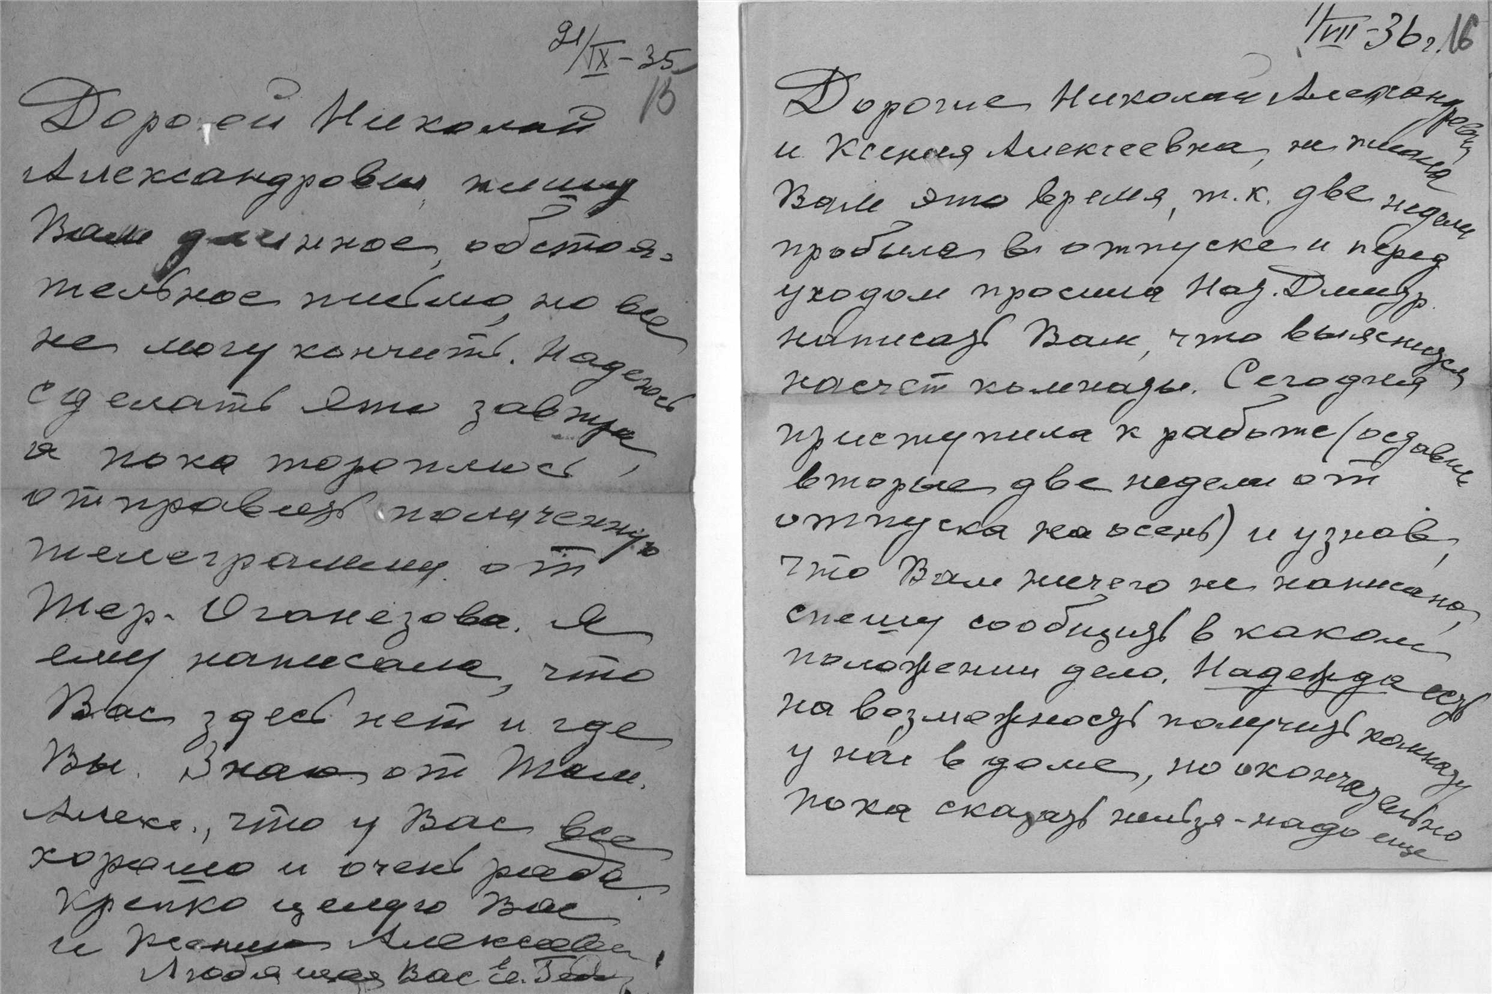 21/IX-35
15
Дорогой Николай
Александрович, пишу
Вам длинное, обстоя-
тельное письмо, но все
не могу кончить. Надеюсь
сделать это завтра,
а пока тороплюсь
отправить полученную
телеграмму от
Тер-Оганезова. Я
ему написала, что
Вас здесь нет и где
Вы. Знаю от Там.
Алекс., что у Вас все
хорошо и очень рада.
Крепко целую Вас
и Ксению Алексеевну
Любящая Вас
1/VIII-36 г.
16
Дорогие Николай Александрович
и Ксения Алексеевна, не писала
Вам это время, т.к. две недели
пробыла в отпуске и перед
уходом просила Над. Дмитр.
написать Вам, что выяснится
насчет комнаты. Сегодня
приступила к работе (оставив
вторые две недели от
отпуска на осень) и узнав,
что Вам ничего не написано,
спешу сообщить в каком
положении дело. Надежда есть
на возможность получить комнату
у нас в доме, но окончательно
пока сказать нельзя - надо еще